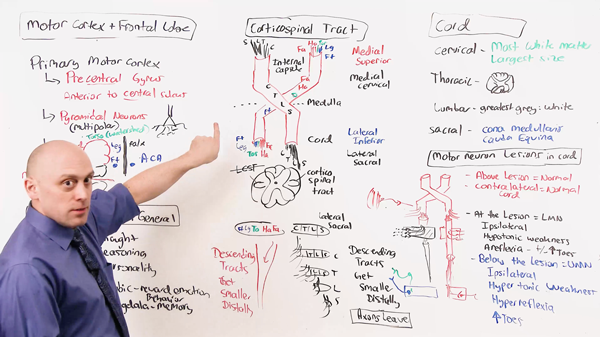 Motor Cortex + Frontal Lobe
Primary Motor Cortex
↳ Precentral Gyrus
Anterior to central sulcus
↳ Pyramidal Neurons
(multipolar)
Torso (watershed)
Falx
Ft
ACA
General
Corticospinal Tract
S L T C
Fa Ha To Lg Ft
Internal
Capsule
Medical
Superior
Medical
cervical
C
T
L
S
Medulla
Ft
Leg
To Ha Fa
Cord
Lateral
Inferior
Lateral
Sacral
cortico
spinal
tract
Lateral
sacral
Ft Lg To Ha Fa
C T L S
Descending
Tracts
Get
Smaller
Distally
C
T
L
S
Descending
Tracts
Get
Smaller
Distally
Axons Leave
Cord
Cervical - Most White matter
Largest size
Thoracic
Lumbar - greatest grey:white
Sacral - cona medullaris
cauda Equina
Motor neuron Lesions in cord
- Above lesion = Normal
- contralateral = Normal
cord
- At the Lesion = LMN
Ipsilateral
Hypotonic weakness
Areflexia - +/- ↑ Toes
- Below the Lesion = UMN
Ipsilateral
Hypertonic weakness
Hyperreflexia
↑ Toes